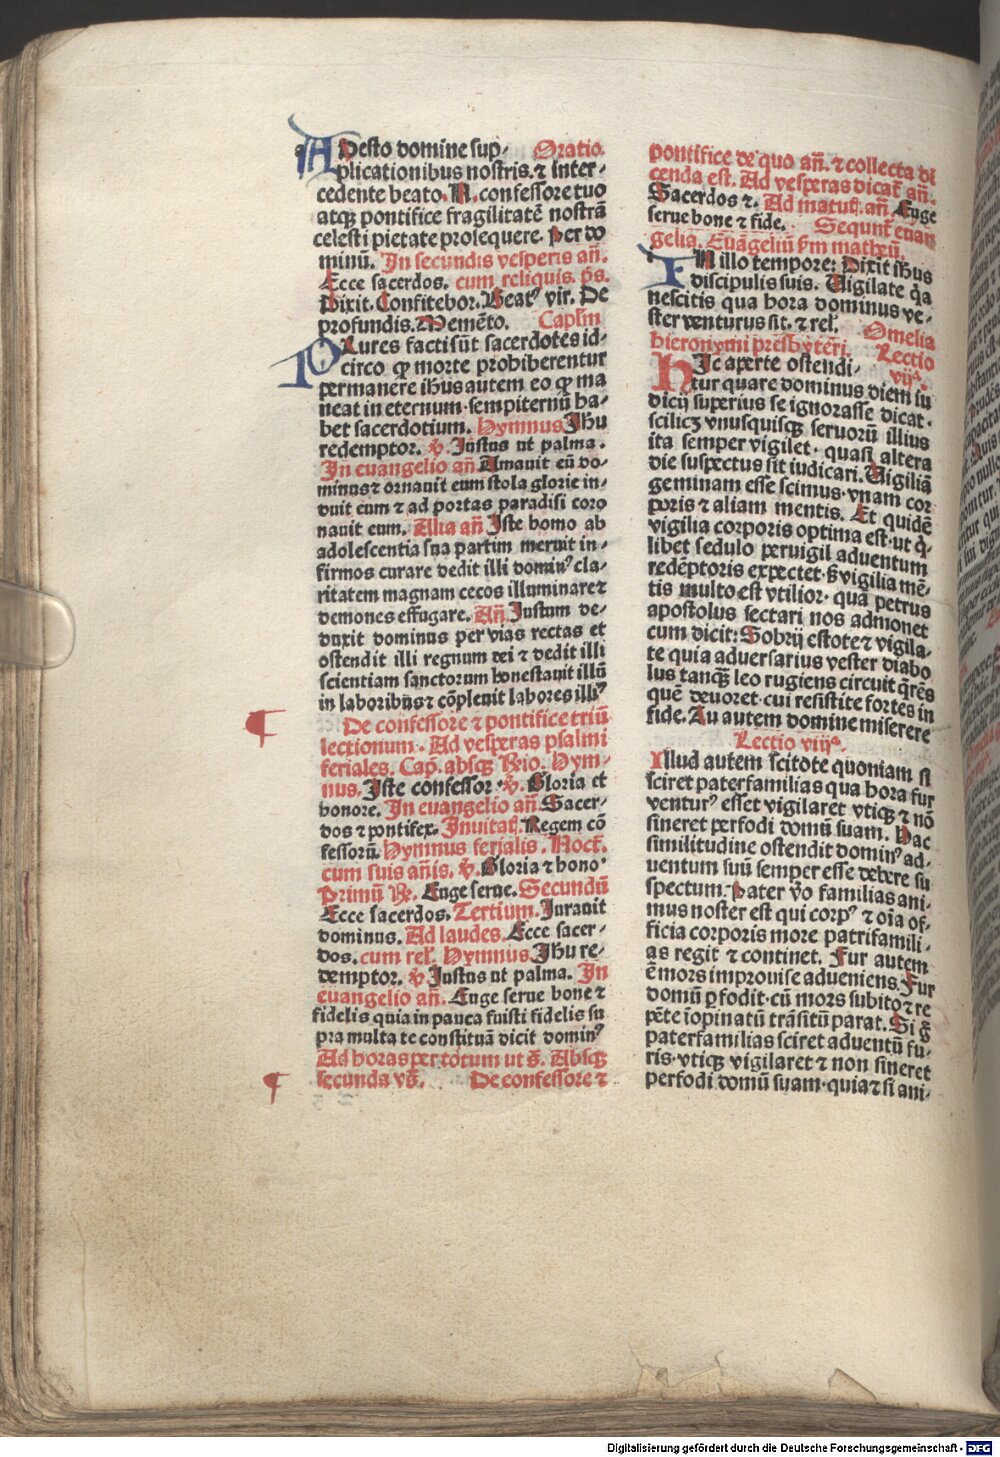 ADesto domine sup⸗ Oratio.
plicationibus nostris. ⁊ inter⸗
cedente beato. N. confessore tuo
atqꝫ pontifice fragilitatē nostrā
celesti pietate prosequere. Per do
minū. In secundis vesperis an̄.
Ecce sacerdos. cum reliquis. p̄s.
Dixit. Confitebor. Beatꝰ vir. De
profundis. ⁊ Memēto. Caplm̄
PLures facti sūt sacerdotes id⸗
circo ꝙ morte prohiberentur
permanere ihūs autem eo ꝙ ma
neat in eternum sempiternū ha⸗
bet sacerdotium. Hymnus Jhū
redemptor. ꝟ. Justus ut palma.
In euangelio an̄ Amauit eū do⸗
minus ⁊ ornauit eum stola glorie in⸗
duit eum ⁊ ad portas paradisi coro
nauit eum. Alia an̄ Iste homo ab
adolescentia sua partim meruit in⸗
firmos curare dedit illi dominꝰ cla⸗
ritatem magnam cecos illuminare ⁊
demones effugare. An̄. Justum de⸗
duxit dominus per vias rectas et
ostendit illi regnum dei ⁊ dedit illi
scientiam sanctorum honestauit illū
in laboribus ⁊ cōpleuit labores illiꝰ
De confessore ⁊ pontifice triū
lectionum. Ad vesperas psalmi
feriales. Cap. absqꝫ R̄io. Hym⸗
nus. Iste confessor. ꝟ. Gloria et
honore. In euangelio an̄. Sacer⸗
dos ⁊ pontifex. Inuitat. Regem cō
fessorū. Hymnus ferialis. Noct.
cum suis an̄is. ꝟ. Gloria ⁊ hono⸗
Primū ℞. Euge serue. Secundū
Ecce sacerdos. Tertium. Iurauit
dominus. Ad laudes. Ecce sacer⸗
dos. cum rel. Hymnus Jhū re⸗
demptor. ꝟ. Justus ut palma. In
euangelio an̄. Euge serue bone ⁊
fidelis quia in pauca fuisti fidelis su
pra multa te constituā dicit dominꝰ
Ad horas per totum ut s̄. Absqꝫ
secunda vs̄. De confessore ⁊
pontifice de quo an̄. ⁊ collecta di
cenda est. Ad vesperas dicat̄ an̄.
Sacerdos ⁊. Ad matut. an̄ Euge
serue bone ⁊ fide. Sequūt euan
gelia. Euāgeliū ẜm mathēū.
IN illo tempore: Dixit ihūs
discipulis suis. Uigilate q̄a
nescitis qua hora dominus ve⸗
ster venturus sit. ⁊ rel. Omelia
hieronymi presbyteri. Lectio
vijᵃ.
HIc aperte ostendi⸗
tur quare dominus diem iu
dicij superius se ignorasse dicat.
scilicꝫ vnusquisqꝫ seruorū illius
ita semper vigilet. quasi altera
die suspectus sit iudicari. Uigiliā
geminam esse scimus. vnam cor
poris ⁊ aliam mentis. Et quidē
vigilia corporis optima est. ut q̄⸗
libet sedulo peruigil aduentum
redēptoris expectet. s̄ vigilia mē⸗
tis multo est vtilior. qua petrus
apostolus sectari nos admonet
cum dicit: Sobrij estote ⁊ vigila⸗
te quia aduersarius vester diabo
lus tanqꝫ leo rugiens circuit q̄rēs
quē deuoret. cui resistite fortes in
fide. Tu autem domine miserere
Lectio viijᵃ.
Illud autem scitote quoniam si
sciret paterfamilias qua hora fur
venturꝰ esset vigilaret vtiqꝫ ⁊ nō
sineret perfodi domū suam. Hac
similitudine ostendit dominꝰ ad⸗
uentum suū semper esse debere su
spectum. Pater v̄o familias ani⸗
mus noster est qui corpꝰ ⁊ oīa of⸗
ficia corporis more patrifamili⸗
as regit ⁊ continet. Fur autem
ē mors improuise adueniens. Fur
domū ꝑfodit. cū mors subito ⁊ re
pēte īopinatū trāsitū parat. Si ḡ
paterfamilias sciret aduentū fu⸗
ris. vtiqꝫ vigilaret ⁊ non sineret
perfodi domū suam. quia ⁊ si ani⸗
Digitalisierung gefördert durch die Deutsche Forschungsgemeinschaft - DFG